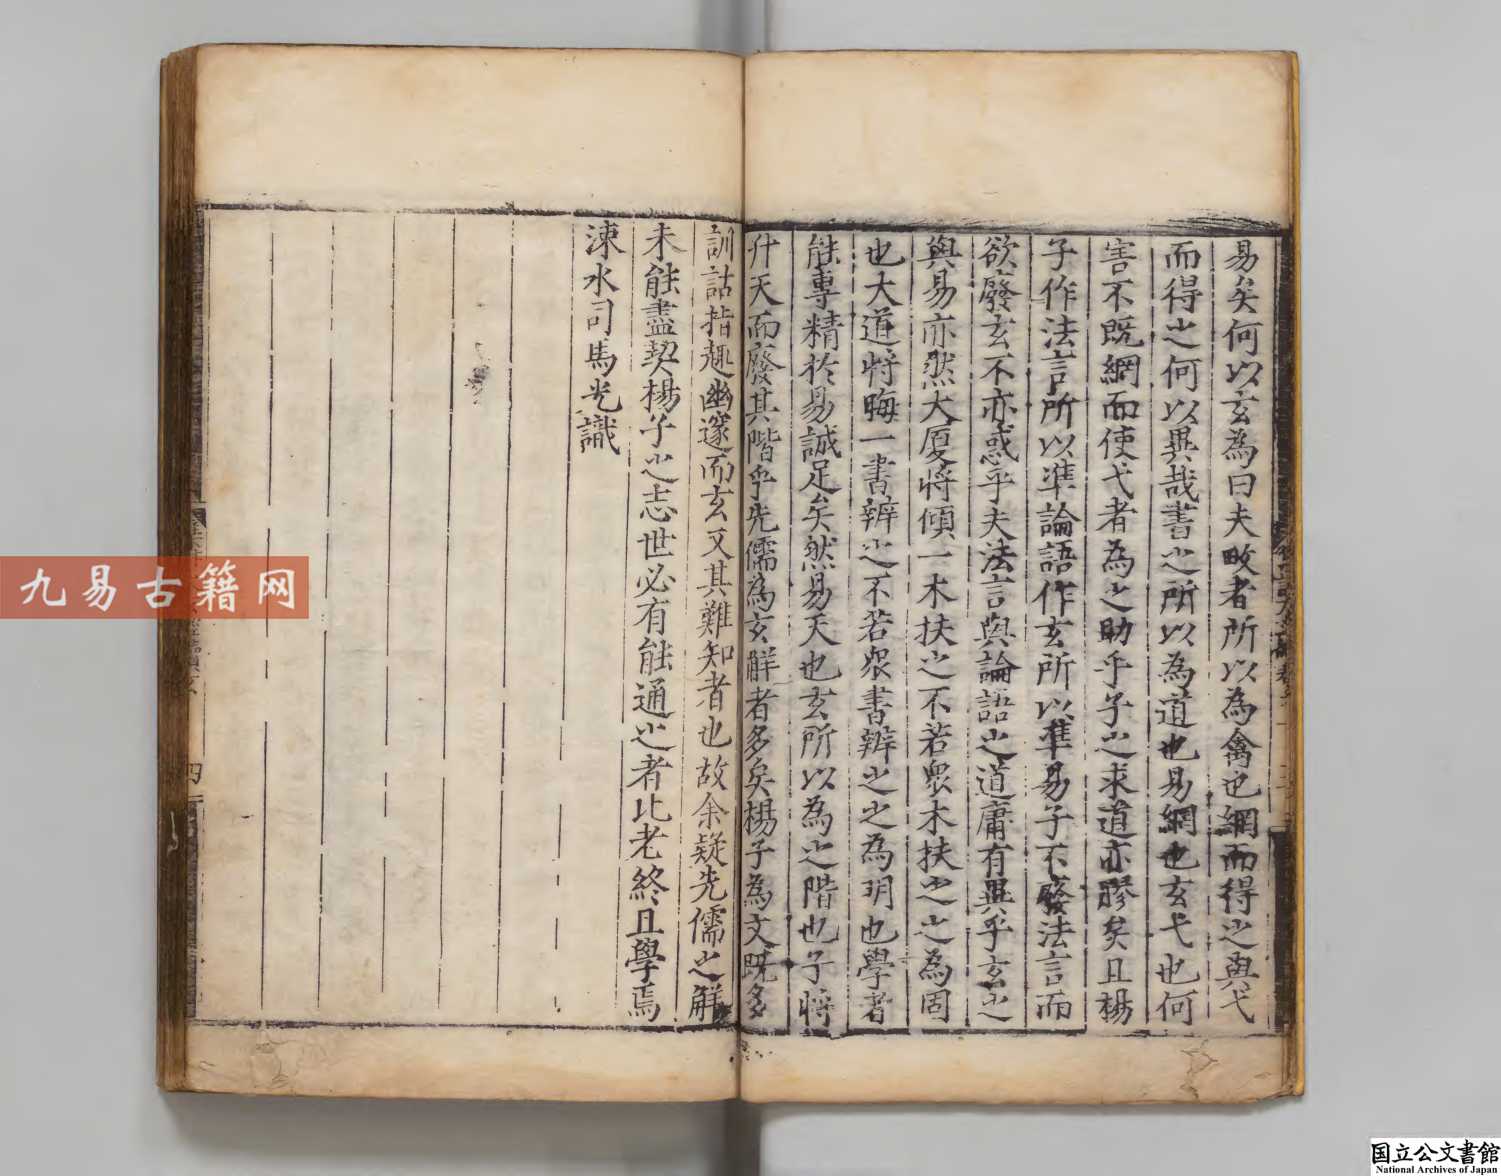 易矣何以玄為曰夫畋者所以為禽也網而得之與弋
而得之何以異哉書之所以為道也易網也玄弋也何
害不既網而使弋者為之助乎子之求道亦膠矣且楊
子作法言所以準論語作玄所以準易子不廢法言而
欲廢玄不亦惑乎夫法言與論語之道庸有異乎玄之
與易亦然大厦將傾一木扶之不若衆木扶之之為固
也大道將晦一書辨之不若衆書辨之之為明也學者
能專精於易誠足矣然易天也玄所以為之階也子將
升天而廢其階乎先儒為玄解者多矣楊子為文既多
訓詁指趣幽邃而玄又其難知者也故余疑先儒之解
未能盡契楊子之志世必有能通之者比老終且學焉
涑水司馬光識
四
九易古籍网
国立公文書館
National Archives of Japan